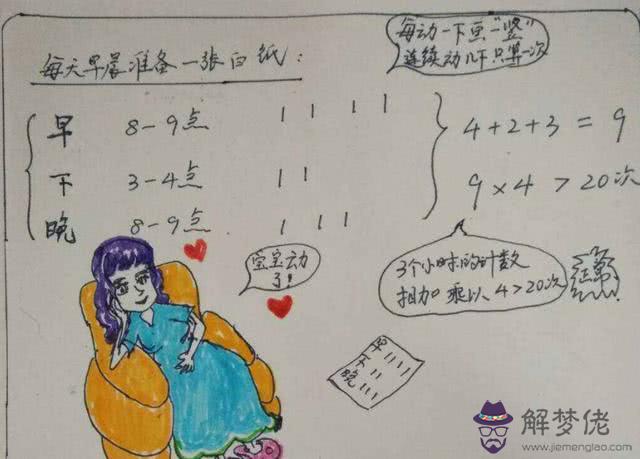 每动一下画“一竖”
连续动几下只算一次
每天早晨准备一张白纸：
早 8-9点 | | | |
下 3-4点 | |
晚 8-9点 | | |
4+2+3=9
9×4>20次
宝宝动
了!
3个小时的计数
相加 乘以 4>20次
正常
早 ||||
下 ||
晚 |||
解梦佬
www.jiemenglao.com